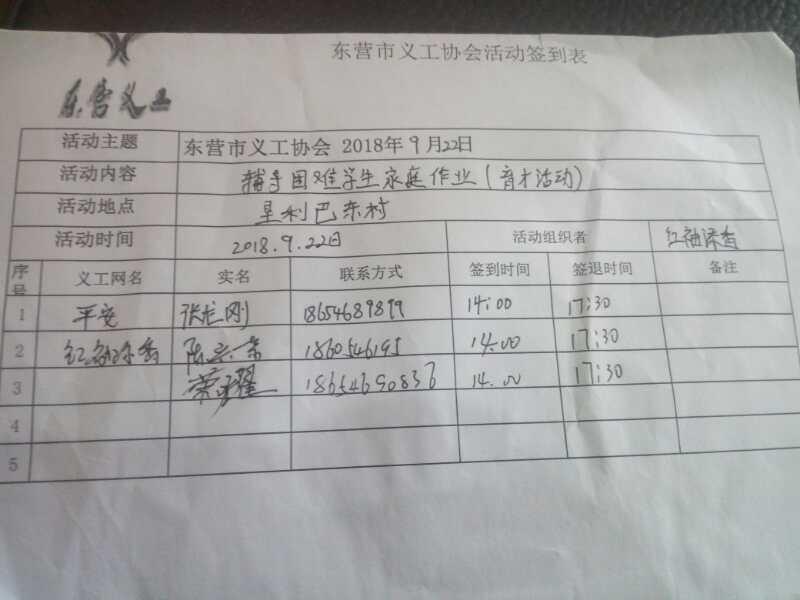 东营市义工协会活动签到表
东营义工
活动主题 东营市义工协会 2018年9月22日
活动内容 辅导困难学生家庭作业(育才活动)
活动地点 垦利巴东村
活动时间 2018.9.22日 活动组织者 红袖添香
序号 义工网名 实名 联系方式 签到时间 签退时间 备注
1 平安 张刚 18654689899 14:00 17:30
2 红袖添香 18605461195 14.00 17:30
3 荣耀 18654690836 14.00 17:30
4
5